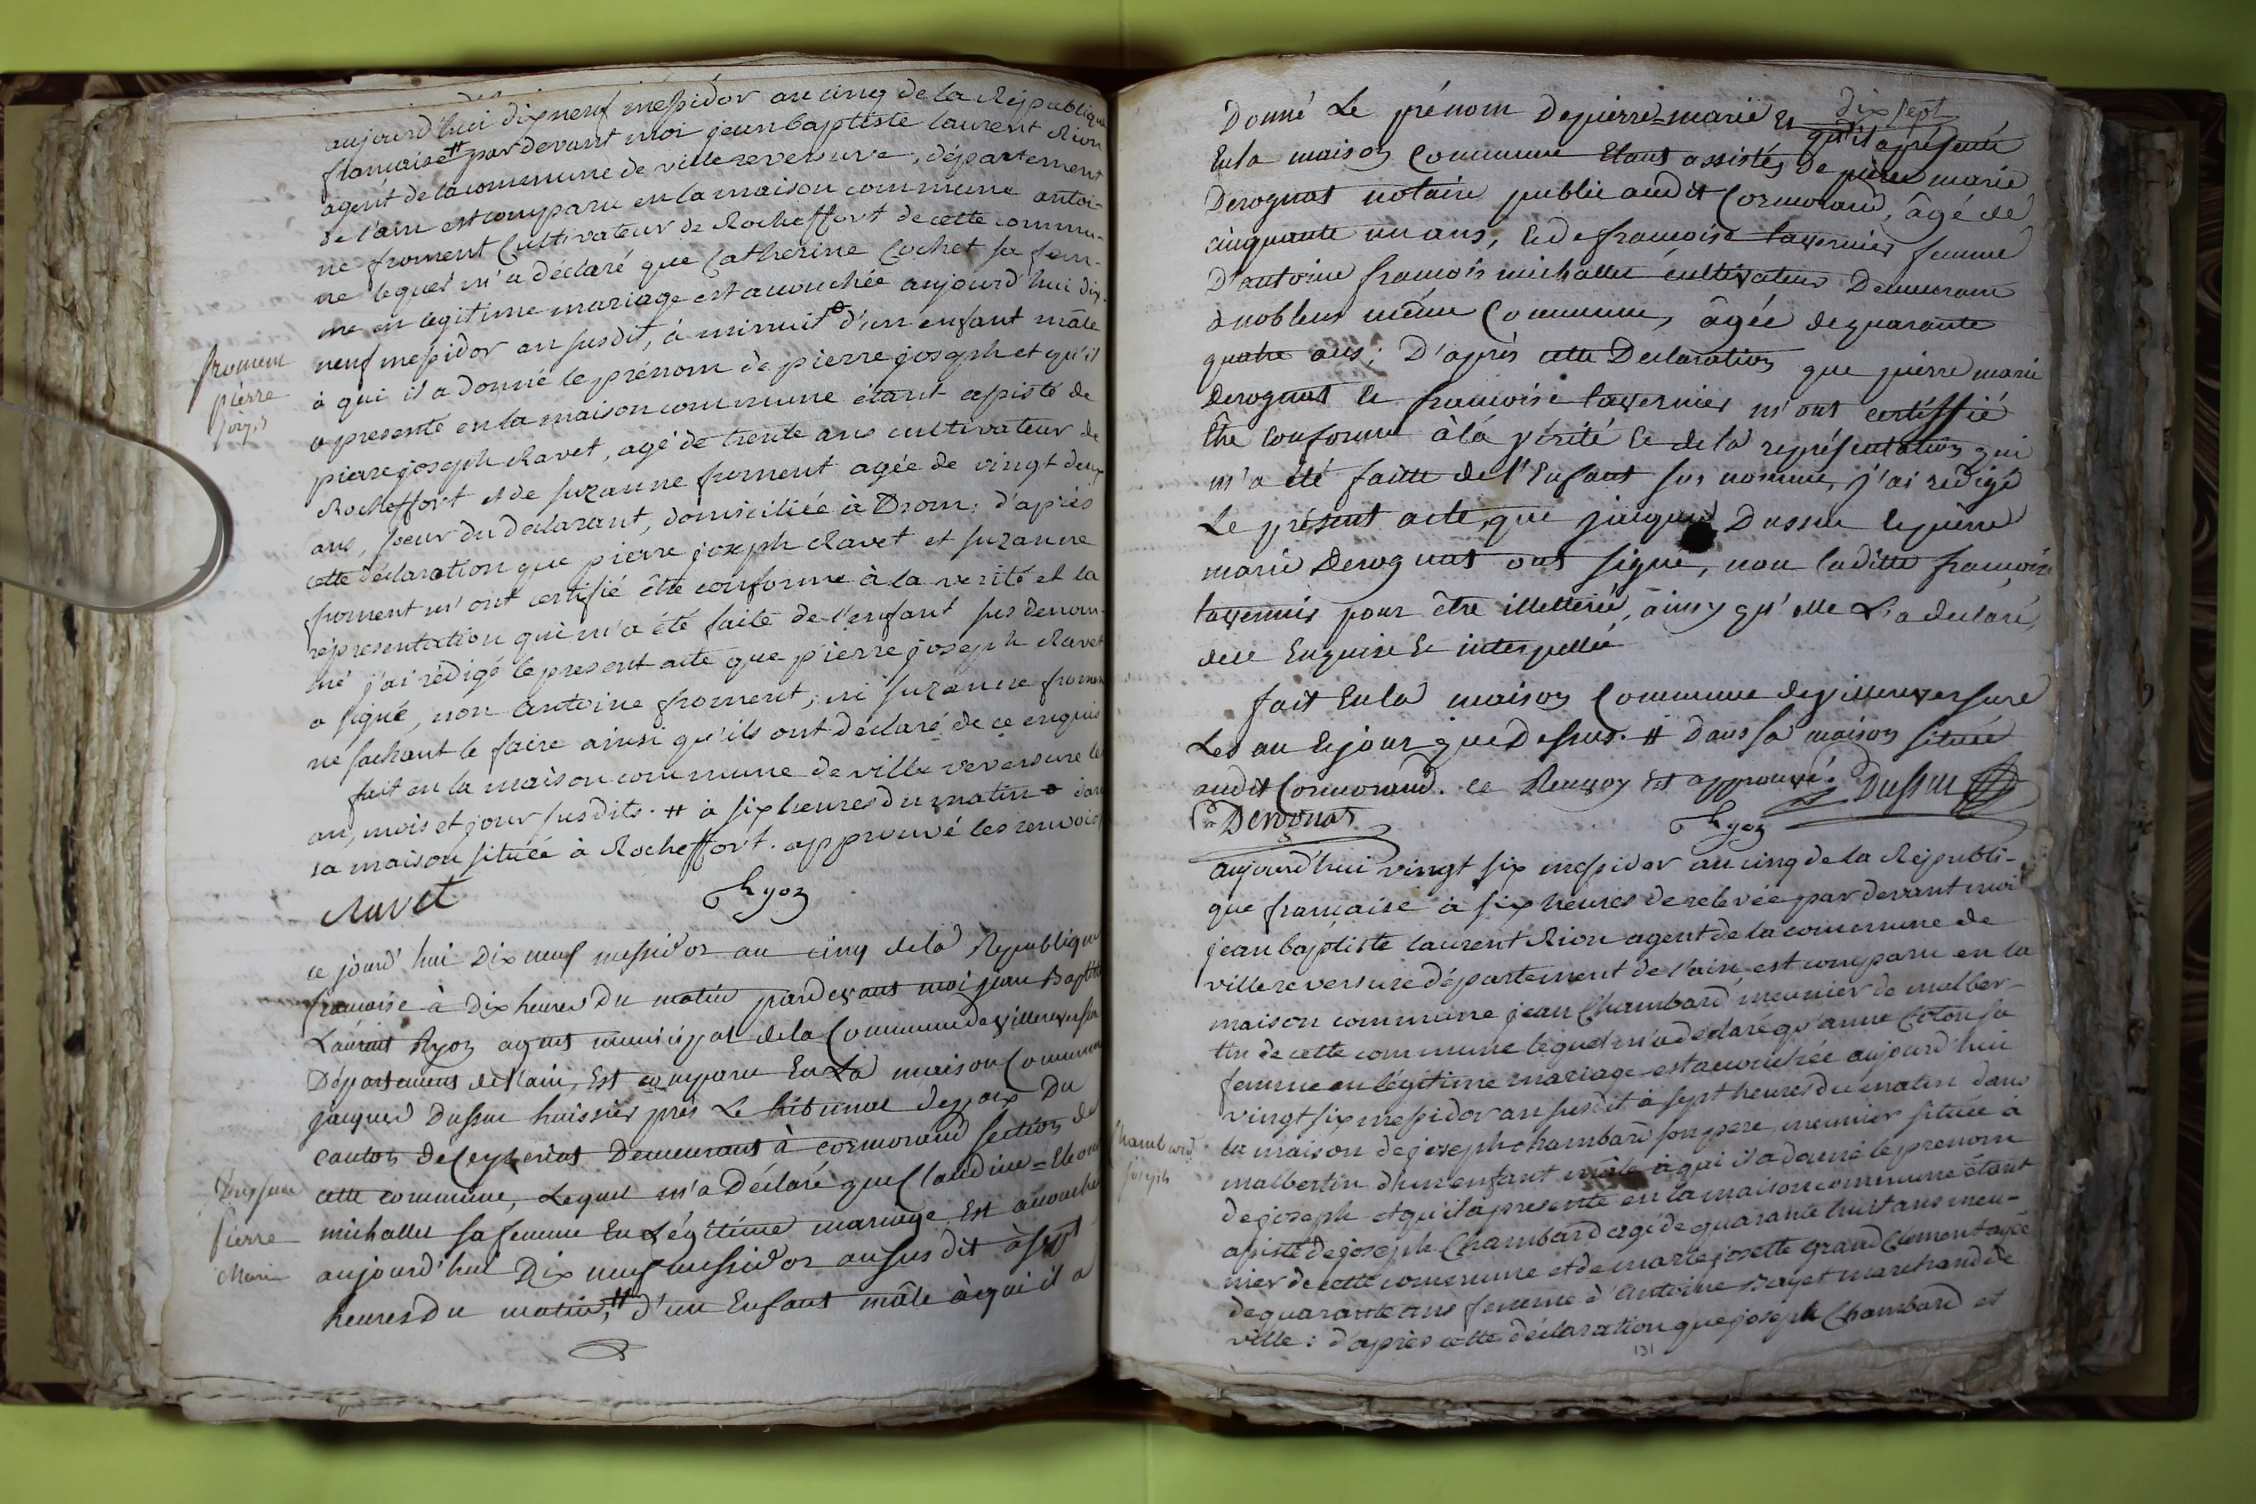 aujourd'hui dix neuf messidor an cinq de la République
française # par devant moi jean baptiste laurent Rion
agent de la commune de villereversure, département
de l'ain est comparu en la maison commune antoi-
ne froment Cultivateur de Rocheffort de cette commu-
ne lequel m'a déclaré que Catherine Cochet sa fem-
me en legitime mariage est acouchée aujourd'hui dix-
neuf messidor an susdit, à minuit d'un enfant mâle
à qui il a donné le prénom de pierre joseph et qu'il
a presenté en la maison commune étant assisté de
pierre joseph Ravet, agé de trente ans cultivateur de
Rocheffort et de suzanne froment agée de vingt deux
ans, soeur du déclarant, domiciliée à Drom; d'après
cette déclaration que pierre joseph Ravet et suzanne
froment m'ont certifié être conforme à la verité et la
représentation qui m'a été faite de l'enfant sus denom-
mé j'ai rédigé le present acte que pierre joseph Ravet
a signé, non antoine froment, ni suzanne froment
ne sachant le faire ainsi qu'ils ont déclaré de ce enquis
fait en la maison commune de villereversure les
an, mois et jour susdits. # à six heures du matin dans
sa maison située à Rocheffort. approuvé les renvois
Ravet
Ryon
froment
pierre
ce jourd'hui Dix neuf messidor an cinq de la République
francoise à Dix heures Du matin pardevant moi jean Baptiste
Laurent Ryon agent municipal de la Commune de villereversure
Département de l'ain, Est comparu En La maison Commune
jacques Dussuc huissier près Le tribunal de paix Du
canton de Ceyzeriat Demeurant à cormorand section de
cette commune, Lequel m'a Déclaré que Claudine =
michallet sa femme En Légitime mariage Est acouchée
aujourd'hui Dix neuf messidor an susdit à sept
heures Du matin, # d'un Enfant mâle à qui il a
Dussuc
Pierre
Marie
dix sept
Donné Le prénom De pierre=marie Et qu'il a présenté
En la maison Commune Etant assistés De pierre marie
Derognat notaire public audit Cormorand, âgé de
cinquante un ans, Et de francoise tavernier femme
D'antoine francois michallet cultivateur Demeurant
à noblens même Commune, âgée de quarante
quatre ans; D'après cette Declaration que pierre marie
Derognat Et francoise tavernier m'ont certiffié
Être Conforme à la vérité Et de la représentation qui
m'a été faitte de l'Enfant sus nommé, j'ai redigé
Le présent acte, que jacques Dussuc Et pierre
marie Derognat ont signé, non laditte francoise
tavernier pour être illettérée, ainsy qu'elle L'a declaré,
de ce Enquise Et interpellée
fait En la maison Commune de villereversure
Les an Et jour que Dessus. # Dans sa maison située
audit Cormorand. ce Renvoy Est approuvé. Dussuc
Derognat
Ryon
aujourd'hui vingt six messidor an cinq de la Républi-
que française à six heures de relevée par devant moi
jean baptiste laurent Rion agent de la commune de
villereversure département de l'ain, est comparu en la
maison commune jean Chambard meunier de malber-
tin de cette commune lequel m'a déclaré qu'anne Coton sa
femme en légitime mariage est acouchée aujourd'hui
vingt six messidor an susdit à sept heures du matin dans
la maison de joseph chambard son pere, meunier située à
malbertin d'un enfant mâle à qui il a donné le prenom
de joseph et qu'il a presenté en la maison commune étant
assisté de joseph Chambard agé de quarante huit ans meu-
nier de cette commune et de marie josette grand Clement agée
de quarante ans femme d'Antoine Bayet marchand de
ville: d'après cette déclaration que joseph Chambard et
Chambard
joseph
131